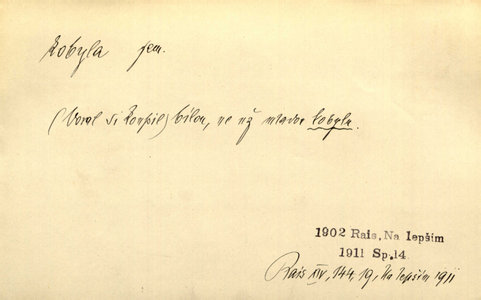 kobyla fem.
(Voral si koupil) bílou, ne už mladou kobylu.
1902 Rais, Na lepším
1911 Sp.14
Rais XIV, 144, 19, Na lepším 1911